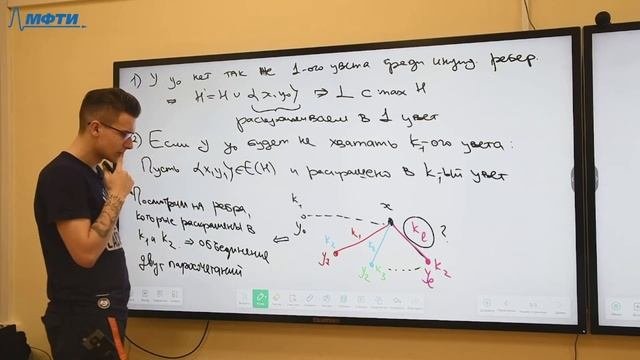 МФТИ
1) У y₀ нет так же 1-ого цвета среди инцид. ребер.
⇒ H' = H ∪ {x, y₀} ⇒ ⊥ с max H
раскрашиваем в 1 цвет
2) Если у y₀ будет не хватать k₁-ого цвета:
Пусть {x, y₁} ∈ E(H) и раскрашено в k₁-ый цвет
Посмотрим на ребра,
которые раскрашены в
k₁ и k₂ ⇒ объединение
двух паросочетаний
⇐
k₁
y₀
x
k₂
k₁
y₁
k₂
y₂
k₃
kₗ
?
yₗ
k₂